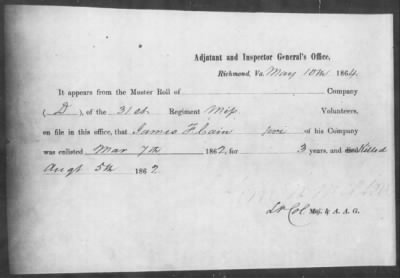 Adjutant and Inspector General's Office,
Richmond, Va. May 10th 1864.
It appears from the Muster Roll of Company
(D), of the 31st Regiment Miss Volunteers,
on file in this office, that James F Cain pvt of his Company
was enlisted Mar 7th 1862, for 3 years, and died Killed
Augt 5th 1862
Lt Col Maj. & A. A. G.